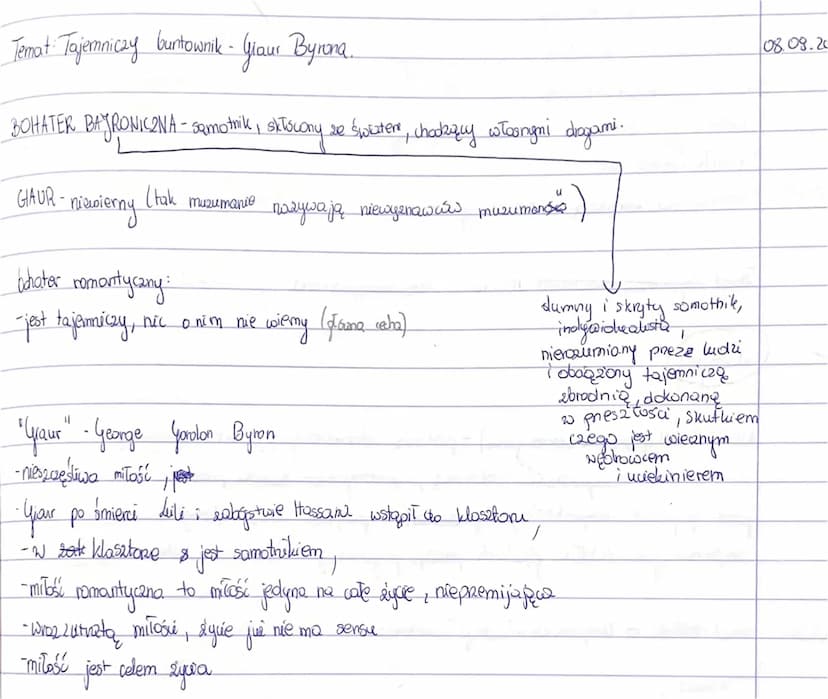 Temat: Tajemniczy buntownik - Giaur Byrona.
08.09.20
BOHATER BAJRONICZNA - samotnik, skłócony ze światem, chodzący własnymi drogami.
GIAUR - niewierny (tak muzumanie nazywają niewyznawców muzumanów)
bohater romantyczny:
- jest tajemniczy, nic o nim nie wiemy (główna cecha)
dumny i skryty samotnik,
indywidualista,
nierozumiany przez ludzi
i obciążony tajemniczą
zbrodnią, dokonaną
w przeszłości, skutkiem
czego jest wiecznym
wędrowcem
i uciekinierem
"Giaur" - George Gordon Byron
- nieszczęśliwa miłość,
- Giaur po śmierci Lili i zabójstwie Hassana wstąpił do klasztoru,
- w klasztorze jest samotnikiem,
- miłość romantyczna to miłość jedyna na całe życie, nieprzemijająca
- wraz z utratą miłości, życie już nie ma sensu
- miłość jest celem życia